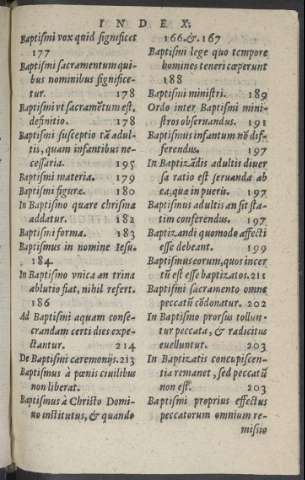 INDEX.
Baptismi vox quid significet
177
Baptismi sacramentum qui-
bus nominibus significe-
tur. 178
Baptismi vt sacramētum est,
definitio. 178
Baptismi susceptio tā adul-
tis, quam infantibus ne-
cessaria. 195
Baptismi materia. 179
Baptismi figure. 180
In Baptismo quare chrisma
addatur. 182
Baptismi forma. 183
Baptismus in nomine Iesu.
184
In Baptismo vnica an trina
ablutio fiat, nihil refert.
186
Ad Baptismi aquam conse-
crandam certi dies expe-
ctantur. 214
De Baptismi caeremonijs. 213
Baptismus à pœnis ciuilibus
non liberat.
Baptismus à Christo Domi-
no institutus, & quando
166. &. 167
Baptismi lege quo tempore
homines teneri cœperunt
188
Baptismi ministri. 189
Ordo inter Baptismi mini-
stros obseruandus. 191
Baptismus infantum nō dif-
ferendus. 197
In Baptizādis adultis diuer
sa ratio est seruanda ab
ea, quæ in pueris. 197
Baptismus adultis an sit sta-
tim conferendus. 197
Baptizandi quomodo affecti
esse debeant. 199
Baptismus eorum, quos incer
tū est esse baptizatos. 211
Baptismi sacramento omne
peccatū cōdonatur. 202
In Baptismo prorsus tollun-
tur peccata, & radicitus
euelluntur. 203
In Baptizatis concupiscen-
tia remanet, sed peccatū
non est. 203
Baptismi proprius effectus
peccatorum omnium re-
missio